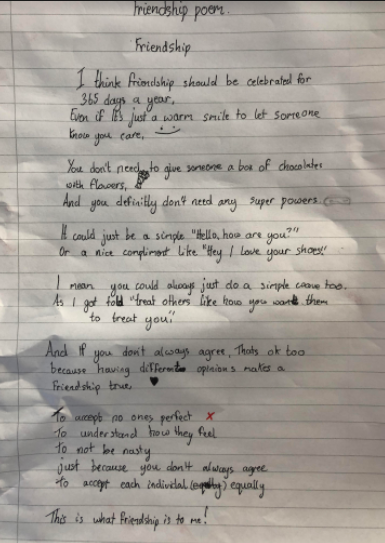 Friendship poem.
Friendship
I think friendship should be celebrated for
365 days a year,
Even if it's just a warm smile to let someone
know you care,
You don't need to give someone a box of chocolates
with flowers,
And you definitly don't need any super powers.
It could just be a simple "Hello, how are you?"
Or a nice compliment like "Hey I love your shoes!"
I mean you could always just do a simple wave too.
As I got told "treat others like how you want them
to treat you."
And if you don't always agree, Thats ok too
because having different opinions makes a
Friendship true
To accept no ones perfect x
To understand how they feel
To not be nasty
just because you don't always agree
To accept each individal equally
This is what friendship is to me!